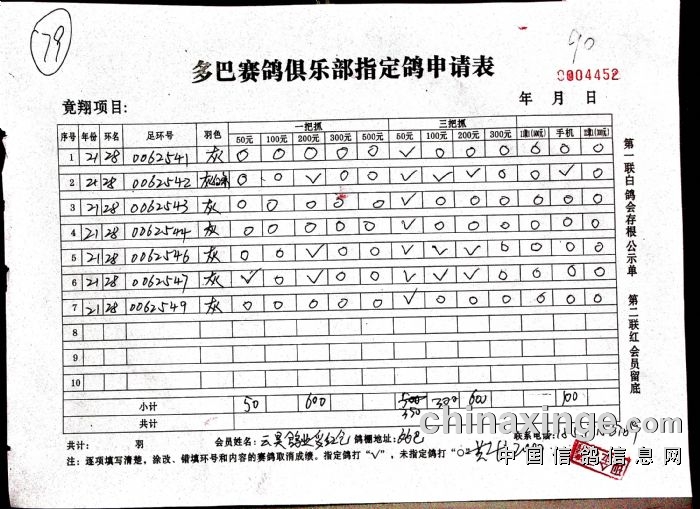 79
90
多巴赛鸽俱乐部指定鸽申请表
0004452
竞翔项目:
年 月 日
序号 年份 环名 足环号 羽色 一把抓 三把抓
50元 100元 200元 300元 500元 50元 100元 200元 300元 手机
1 21 28 0062541 灰 0 0 0 0 0 √ 0 0 0 0 0 0
2 21 28 0062542 灰 0 0 √ 0 0 √ √ √ 0 0 √ 0
3 21 28 0062543 灰 0 0 0 0 0 √ 0 0 0 0 0 0
4 21 28 0062544 灰 0 0 0 0 0 √ 0 0 0 0 0 0
5 21 28 0062546 灰 0 0 √ 0 0 √ √ √ 0 0 0 0
6 21 28 0062547 灰 √ 0 √ 0 0 √ √ √ 0 0 0 0
7 21 28 0062549 灰 0 0 0 0 0 √ 0 0 0 0 0 0
8
9
10
小计 50 600 350 300 600 100
共计
共计: 羽 会员姓名: 云昊鸽业 鸽棚地址: 联系电话:
注: 逐项填写清楚，涂改、错填环号和内容的赛鸽取消成绩。指定鸽打“√”，未指定鸽打“○”
共2000
第一联白鸽会存根公示单 第二联红会员留底
chinaxinge.com
中国信鸽信息网